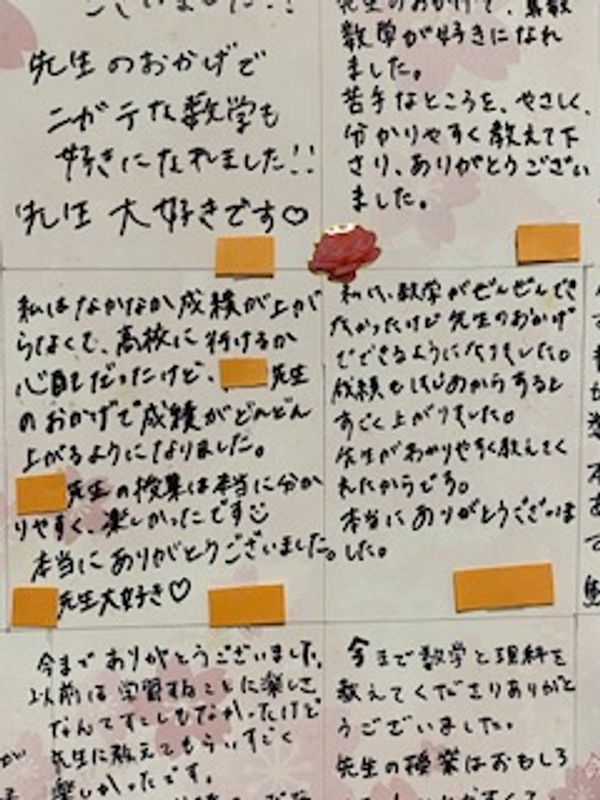 ございました!!
先生のおかげで
ニガテな数学も
好きになれました!!
先生大好きです♡
先生のおかげで、算数
数学が好きになれ
ました。
苦手なところを、やさしく、
分かりやすく教えて下
さり、ありがとうござい
ました。
私はなかなか成績が上が
らなくて、高校に行けるか
心配だったけど、先生
のおかげで成績がどんどん
上がるようになりました。
先生の授業は本当に分か
りやすく、楽しかったです
本当にありがとうございました。
先生大好き♡
私は、数学がぜんぜんでき
なかったけど先生のおかげ
でできるようになりました。
成績もはじめからすると
すごく上がりました。
先生がわかりやすく教えてく
れたからです。
本当にありがとうございま
した。
今までありがとうございました。
以前は学習することに楽しさ
なんてすこしもなかったけど
先生に教えてもらいすごく
楽しかったです。
今まで数学と理科を
教えてくださりありがと
うございました。
先生の授業はおもしろ